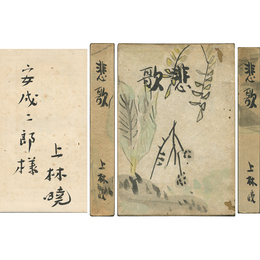 安成二郎様
上林暁
悲歌
上林暁
悲歌
悲歌
上林暁